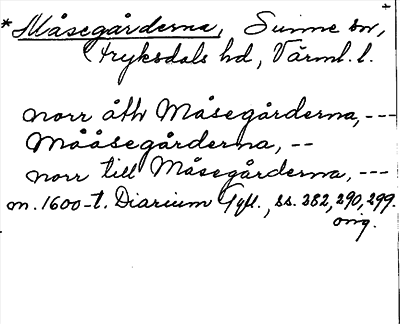 *Måsegårderna, Sunne sn,
Fryksdals hd, Värml. l.
norr åth Måsegårderna, ---
Mååsegårderna, --
norr till Måsegårderna, ---
m. 1600-t. Diarium Gyll., ss. 282, 290, 299.
orig.